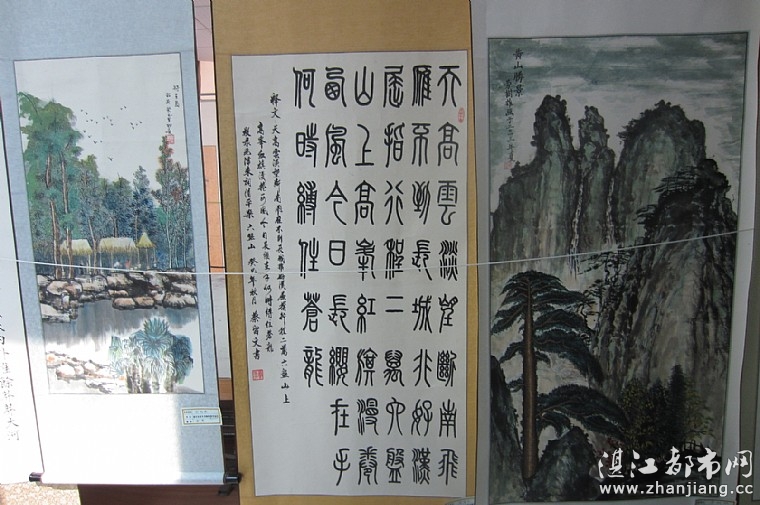 天高雲淡望斷南飛
雁不到長城非好漢
屈指行程二萬六盤
山上高峰紅旗漫卷
西風今日長纓在手
何時縛住蒼龍
釋文 天高雲淡望斷南飛雁不到長城非好漢屈指行程二萬六盤山上
高峰紅旗漫卷西風今日長纓在手何時縛住蒼龍
敬录毛澤東詞清平樂六盤山
黄山勝景
湛江都市网
www.zhanjiang.cc